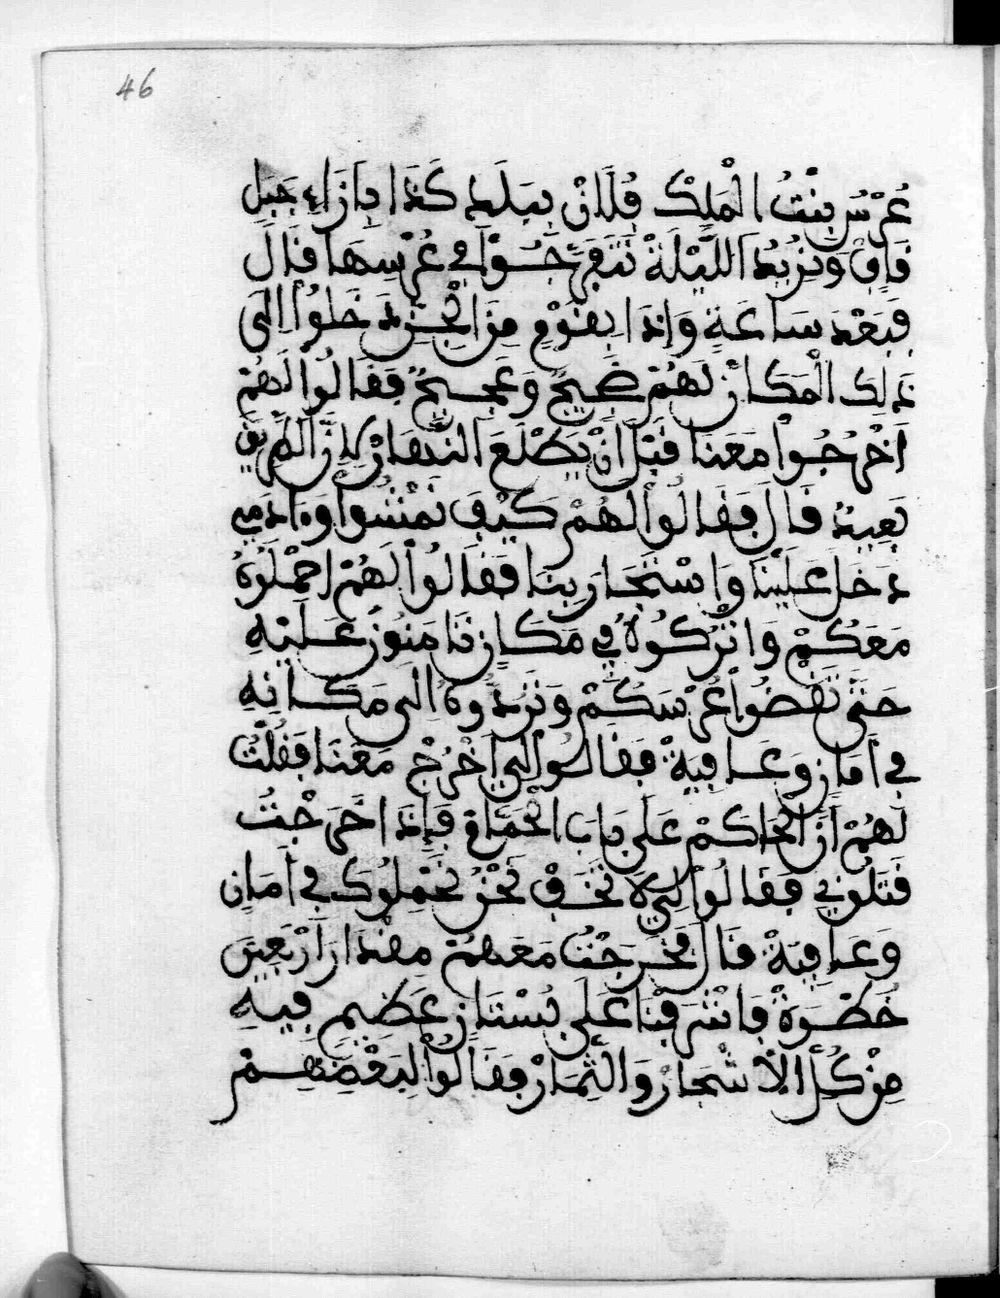 46
عُرْسُ بِنْتُ الْمَلِكْ فُلَانْ بِبَلَدِ كَذَا بِازَاءِ جَبَلِ
قَافْ وَنُرِيدُ اللَّيْلَةْ نَتَفَرَّجُوا فِي عُرْسِهَا قَالَ
فَبَعْدَ سَاعَةٍ وَاِذَا بِقَوْمٍ مِنَ الْجِنِّ دَخَلُوا اِلَى
ذَلِكَ الْمَكَانْ لَهُمْ ضَجِيجٌ وَعَجِيجٌ فَقَالُوا لَهُمْ
اَخْرُجُوا مَعَنَا قَبْلَ اَنْ يَطْلَعَ النَّهَارْ لِاَنَّ الطَّرِيقَ
بَعِيدْ قَالَ فَقَالُوا لَهُمْ كَيْفَ نَمْشُوا وَادَمِي
دَخَلَ عَلَيْنَا وَاسْتَجَارَ بِنَا فَقَالُوا لَهُمْ احْمِلُوهُ
مَعَكُمْ وَاتْرُكُوهُ فِي مَكَانٍ نَامَنُوا عَلَيْهِ
حَتَّى تَقْضُوا عُرْسَكُمْ وَتَرُدُّوهُ اِلَى مَكَانِهِ
فِي اَمَانٍ وَعَافِيَةْ فَقَالُوا لِي اَخْرُجْ مَعَنَا فَقُلْتُ
لَهُمْ اَنَّ الْحَاكَمْ عَلَى بَابِ الْحَمَّامْ فَإِذَا اخَرَجْتُ
قَتَلُونِي فَقَالُوا لِي لَا تَخَفْ نَحْنُ نَحْمِلُوكَ فِي اَمَانٍ
وَعَافِيَةْ قَالَ فَخَرَجْتُ مَعَهُمْ مِقْدَارَ اَرْبَعِينَ
خُطْوَةْ فَاشْرَفْنَا عَلَى بُسْتَانٍ عَظِيمٍ فِيهِ
مِنْ كُلِّ الْاَشْجَارْ وَالثِّمَارْ فَقَالُوا لِبَعْضِهِمْ